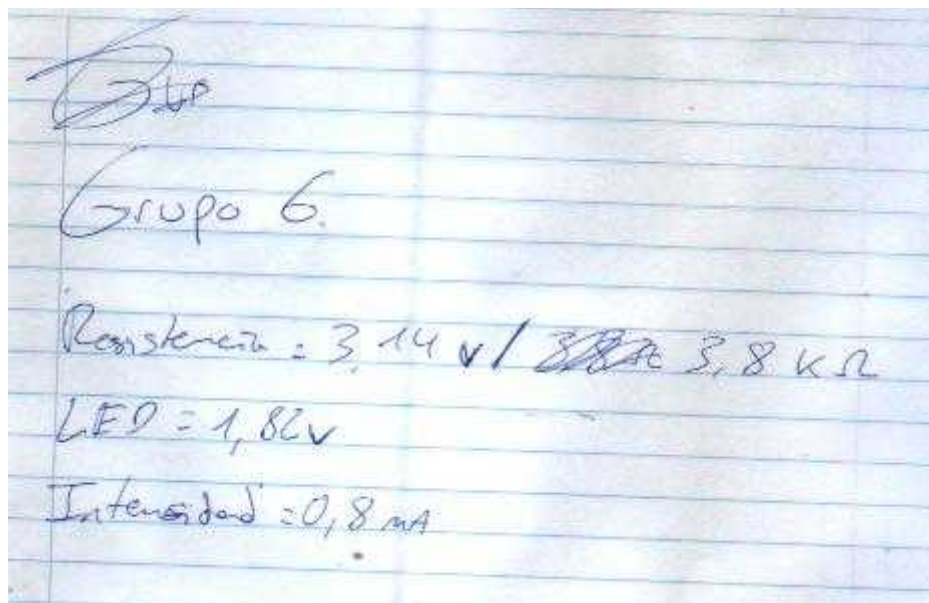 Grupo 6.
Resistencia = 3,14 v / 3,8 K Ω
LED = 1,82v
Intensidad = 0,8 mA